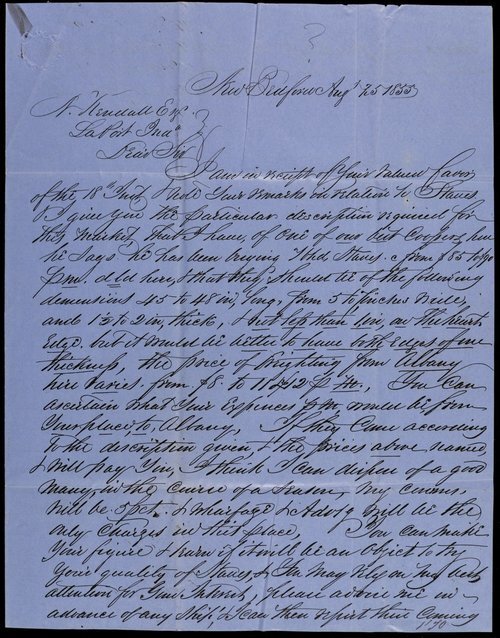 New Bedford Aug 25 1855
N. Kendall Esq
La Port Ind
Dear Sir
I am in receipt of Your valued favor
of the 18th Inst & note Your remarks in relation to Staves
I give You the particular description required for
this market, that I have, of one of our best Coopers here
he says he has been buying Staves from $85 to
pm. dld here, & that they should be of the following
demensions 45 to 48 in, long, from 5 to inches wide,
and 1½ to 2 in, thick, & not less than in, on the heart
Edge. but it would be better to have both Edges of one
thickness, the price of freighting from Albany
here varies, from $8. to 12 You Can
ascertain what Your Expences would be from
Your place, to, Albany, If they Come according
to the description given & the prices above named,
& will pay You, I think I Can dispose of a good
many, in the Course of a Season, my comms.
will be 5 pct. & wharfage & Advtg will be the
only Charges in this place, You can make
Your figure & if it will be an object to try
Your quality of Staves, & You may rely on my best
attention for Your Interest, please advise me in
advance of any Ship, & I Can then report their Coming